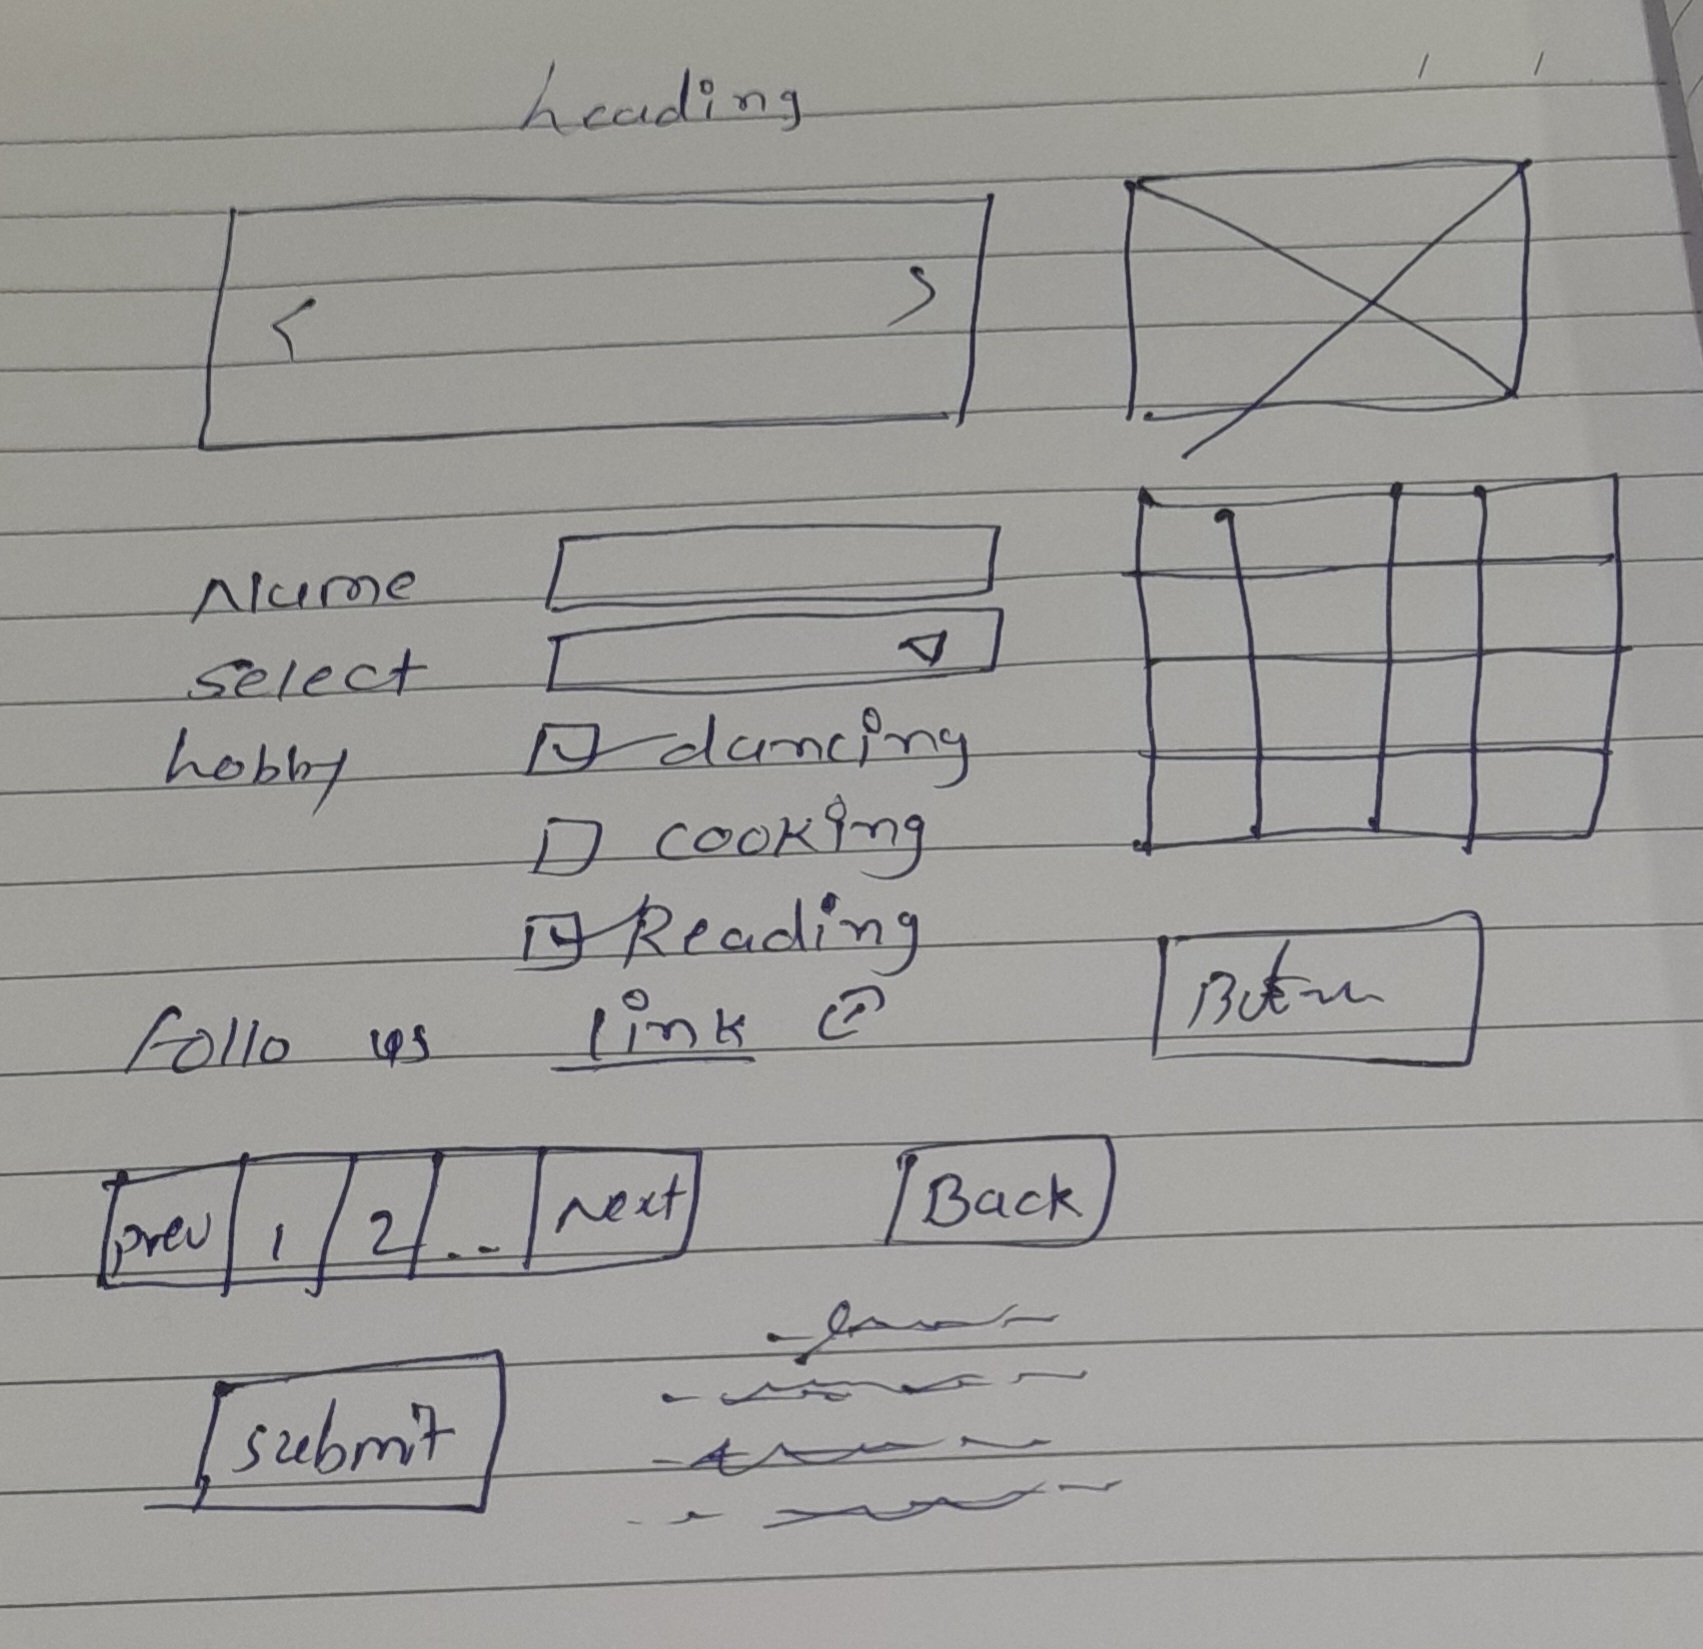 heading
< >
Name
select
hobby dancing
cooking
Reading
follo us link
Button
prev 1 2 .. Next
Back
submit